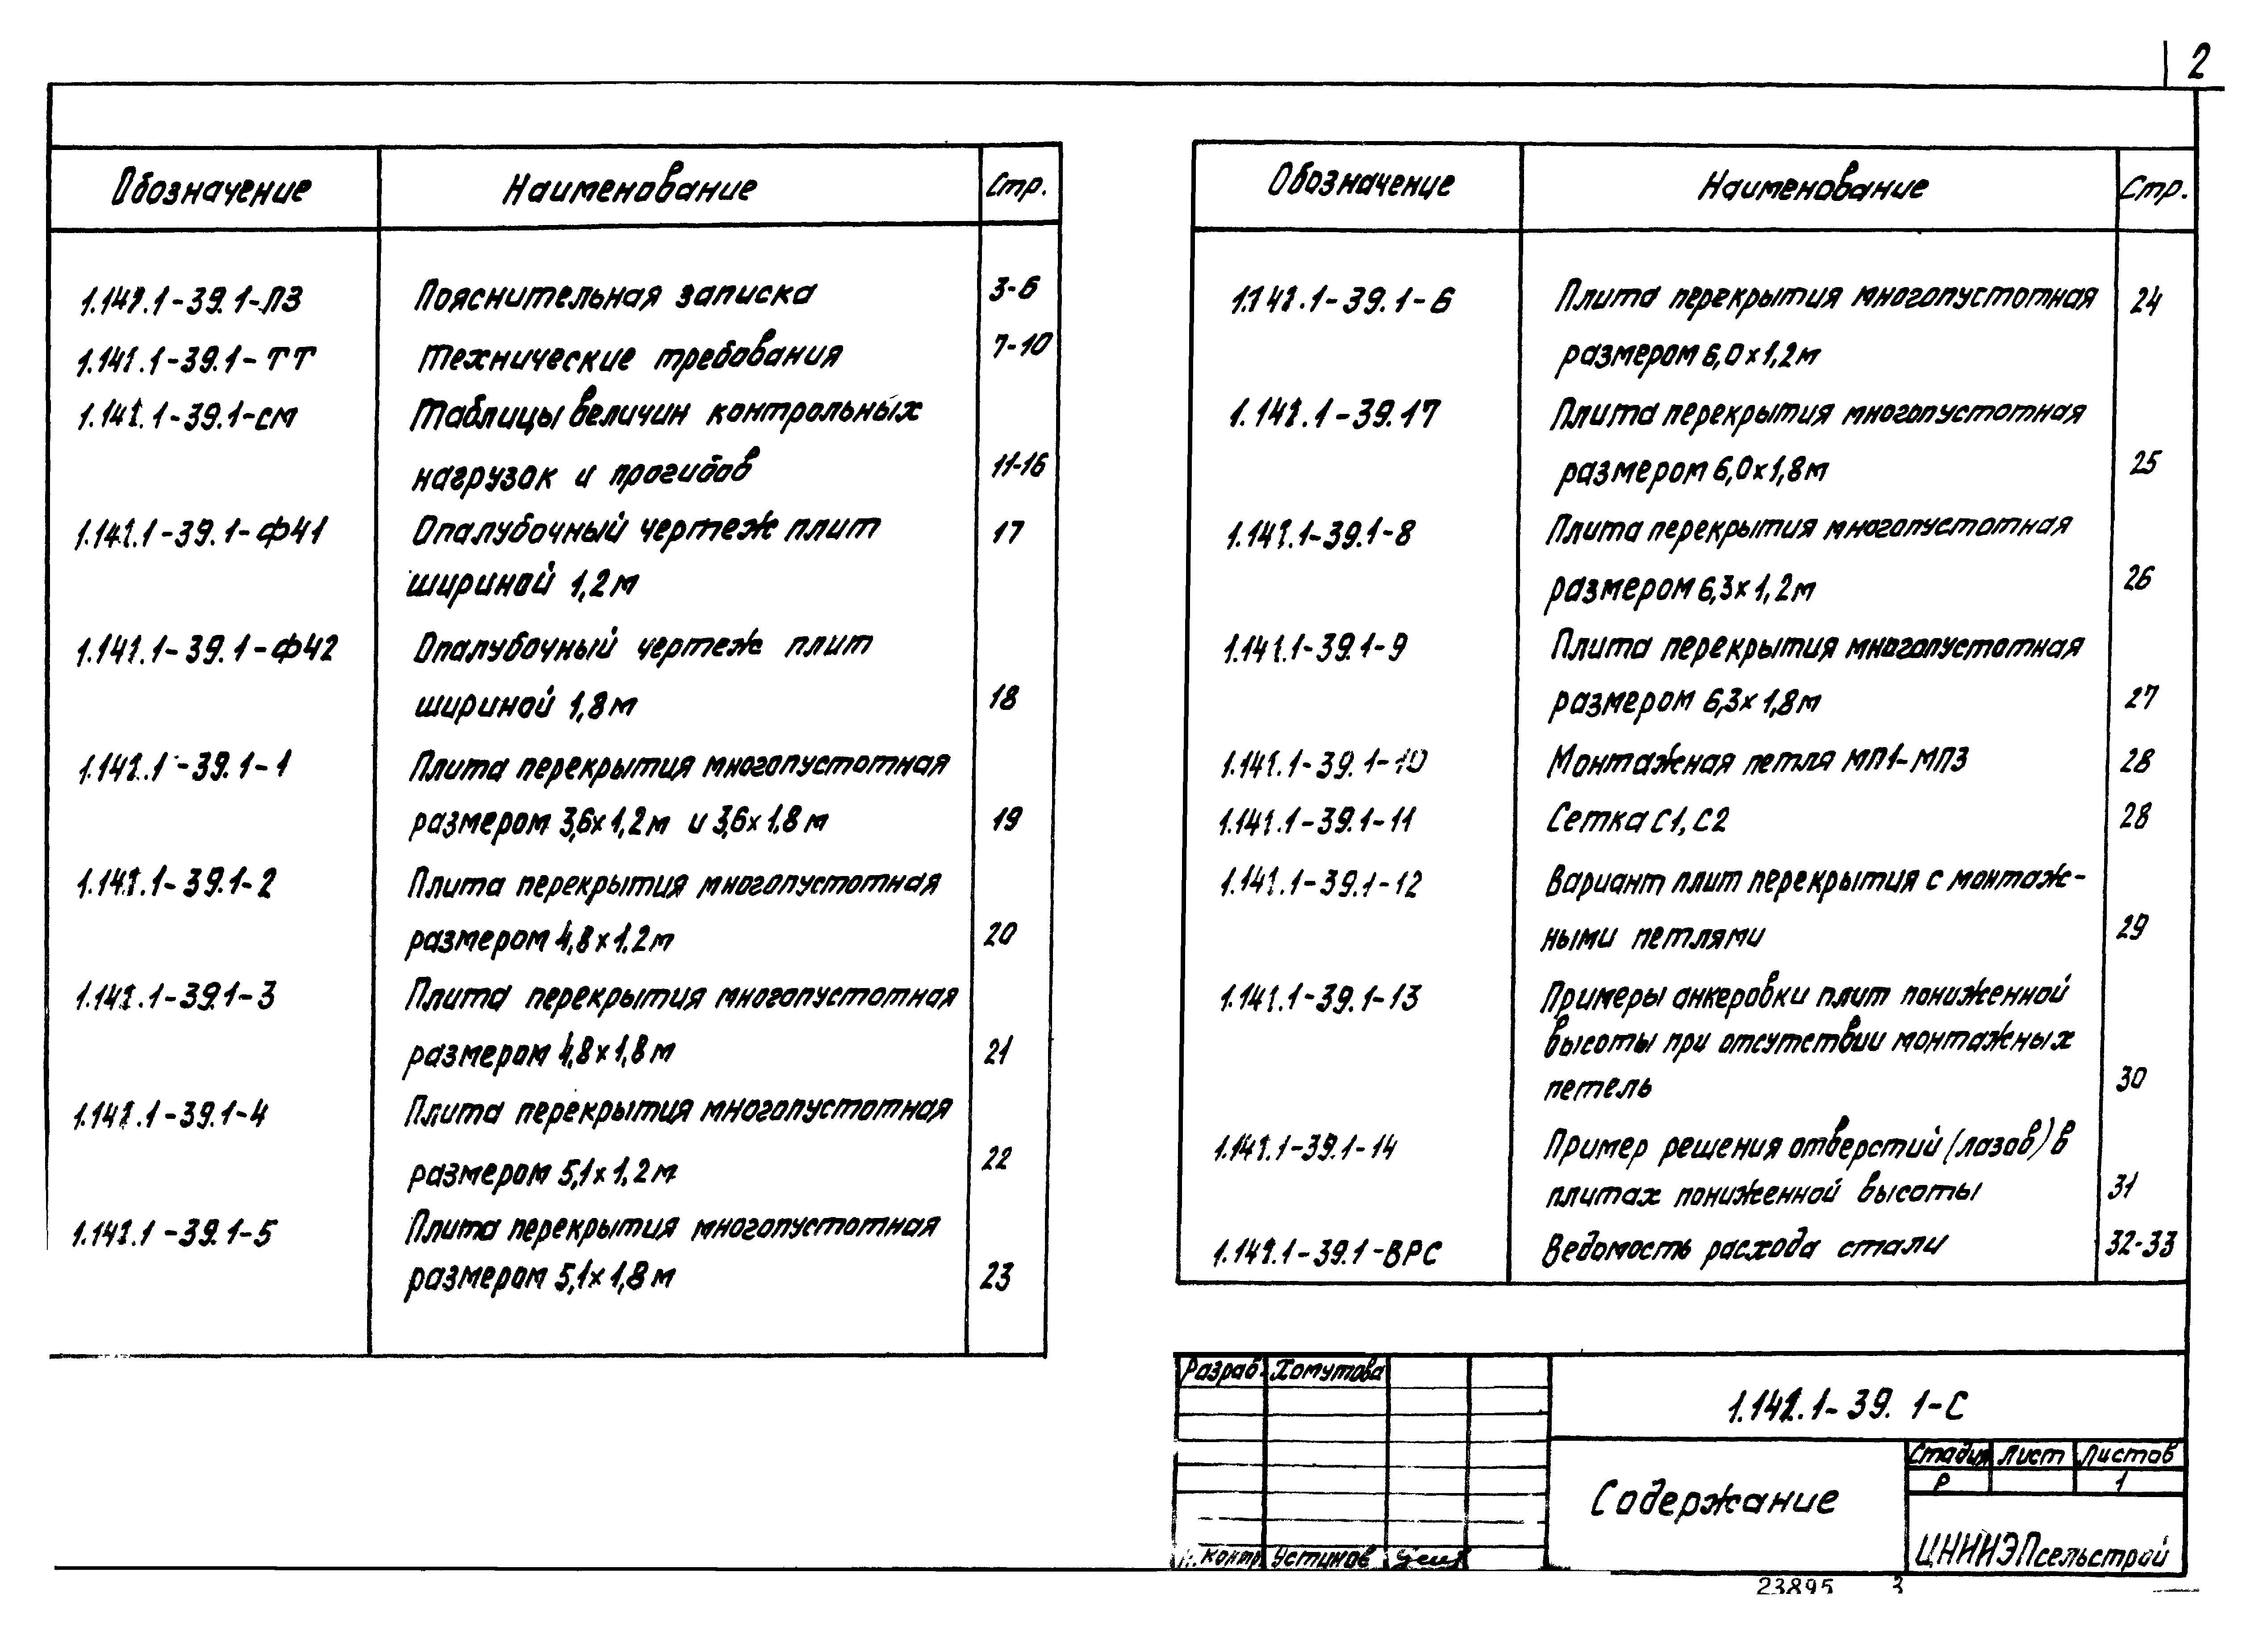 2
Обозначение Наименование Стр.
1.141.1-39.1-ПЗ Пояснительная записка 3-6
1.141.1-39.1-ТТ Технические требования 7-10
1.141.1-39.1-см Таблицы величин контрольных
нагрузок и прогибов 11-16
1.141.1-39.1-ф41 Опалубочный чертеж плит 17
шириной 1,2м
1.141.1-39.1-ф42 Опалубочный чертеж плит
шириной 1,8м 18
1.141.1-39.1-1 Плита перекрытия многопустотная
размером 3,6х1,2м и 3,6х1,8м 19
1.141.1-39.1-2 Плита перекрытия многопустотная
размером 4,8х1,2м 20
1.141.1-39.1-3 Плита перекрытия многопустотная
размером 4,8х1,8м 21
1.141.1-39.1-4 Плита перекрытия многопустотная
размером 5,1х1,2м 22
1.141.1-39.1-5 Плита перекрытия многопустотная
размером 5,1х1,8м 23
Обозначение Наименование Стр.
1.141.1-39.1-6 Плита перекрытия многопустотная 24
размером 6,0х1,2м
1.141.1-39.17 Плита перекрытия многопустотная
размером 6,0х1,8м 25
1.141.1-39.1-8 Плита перекрытия многопустотная
размером 6,3х1,2м 26
1.141.1-39.1-9 Плита перекрытия многопустотная
размером 6,3х1,8м 27
1.141.1-39.1-10 Монтажная петля МП1-МП3 28
1.141.1-39.1-11 Сетка С1, С2 28
1.141.1-39.1-12 Вариант плит перекрытия с монтаж-
ными петлями 29
1.141.1-39.1-13 Примеры анкеровки плит пониженной
высоты при отсутствии монтажных
петель 30
1.141.1-39.1-14 Пример решения отверстий (лазов) в
плитах пониженной высоты 31
1.141.1-39.1-ВРС Ведомость расхода стали 32-33
Разраб. Хомутова
1.141.1-39. 1-С
Содержание
Стадия Лист Листов
Р 1
Н. контр. Устинов
ЦНИИЭПсельстрой
23895 3